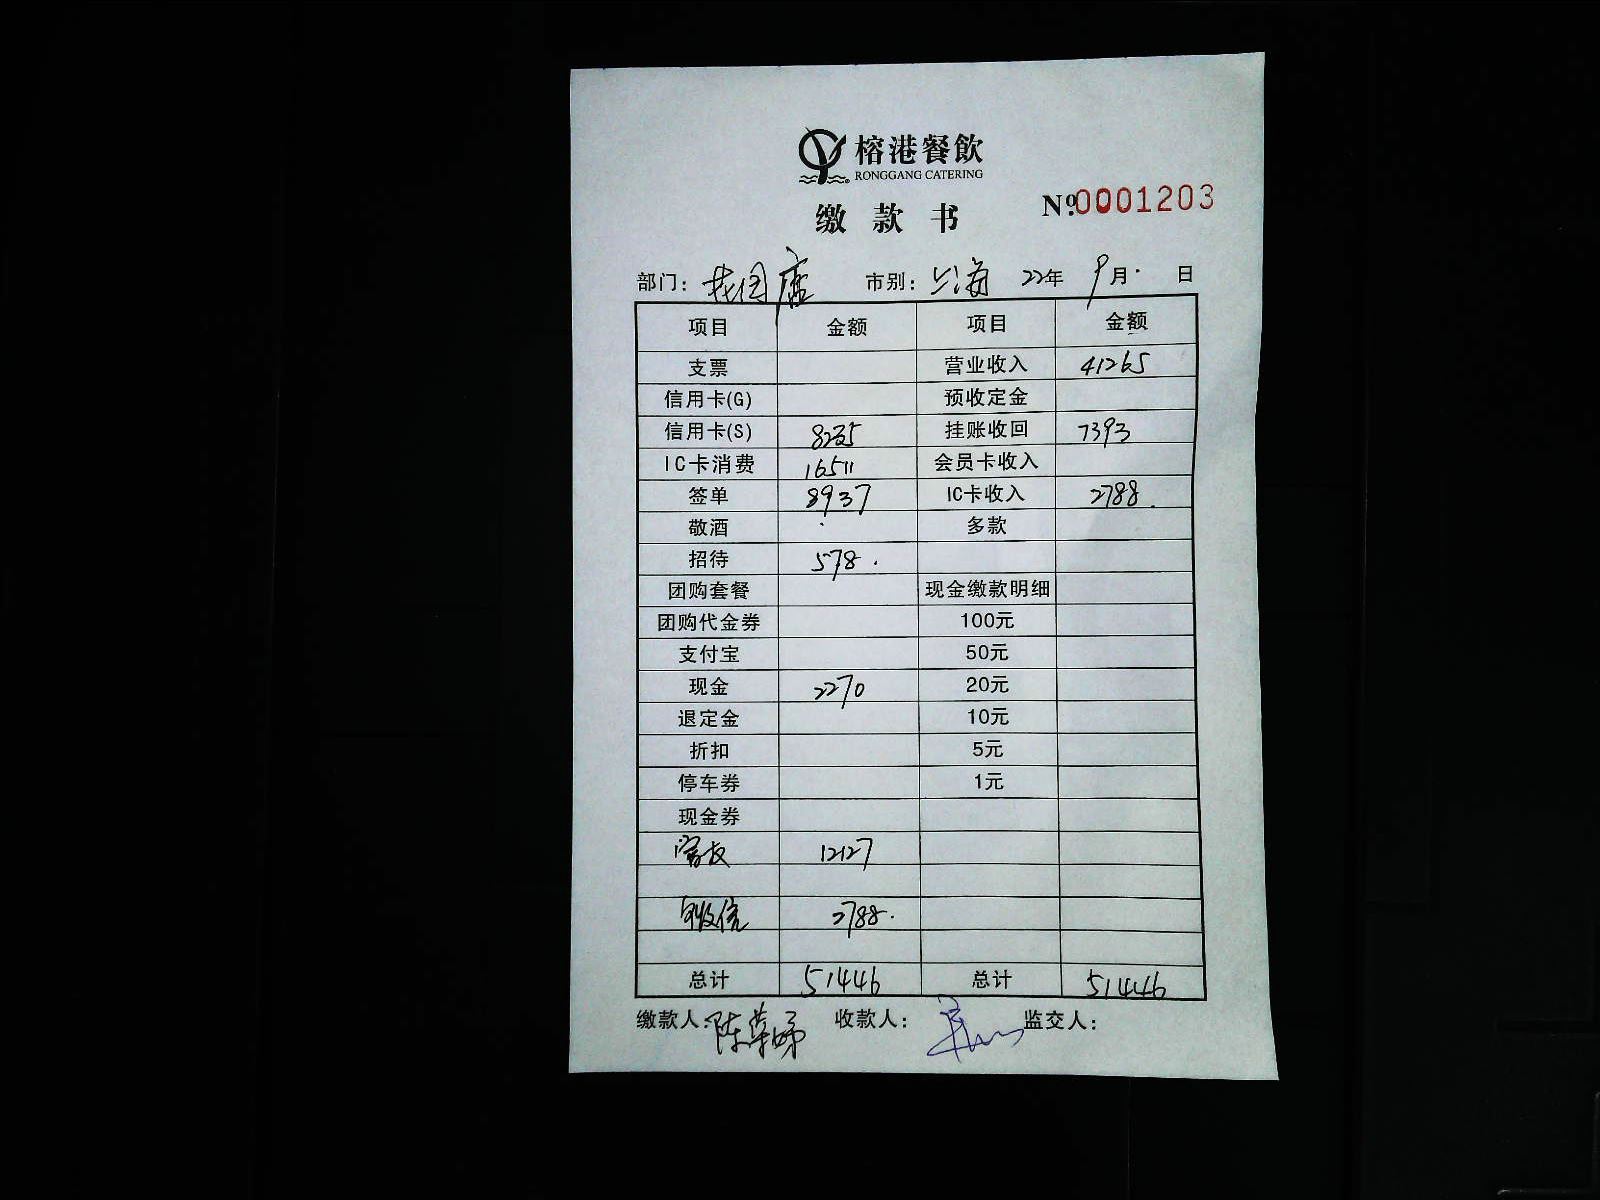 榕港餐飲
RONGGANG CATERING
缴款书 Nº.0001203
部门: 店 市别: 上海 22年 9月 日
项目 金额 项目 金额
支票 营业收入 41265
信用卡(G) 预收定金
信用卡(S) 8235 挂账收回 7393
IC卡消费 16511 会员卡收入
签单 8937 IC卡收入 2788
敬酒 多款
招待 578
团购套餐 现金缴款明细
团购代金券 100元
支付宝 50元
现金 2270 20元
退定金 10元
折扣 5元
停车券 1元
现金券
富友 12127
2788
总计 51446 总计 51446
缴款人: 陈 收款人: 监交人: